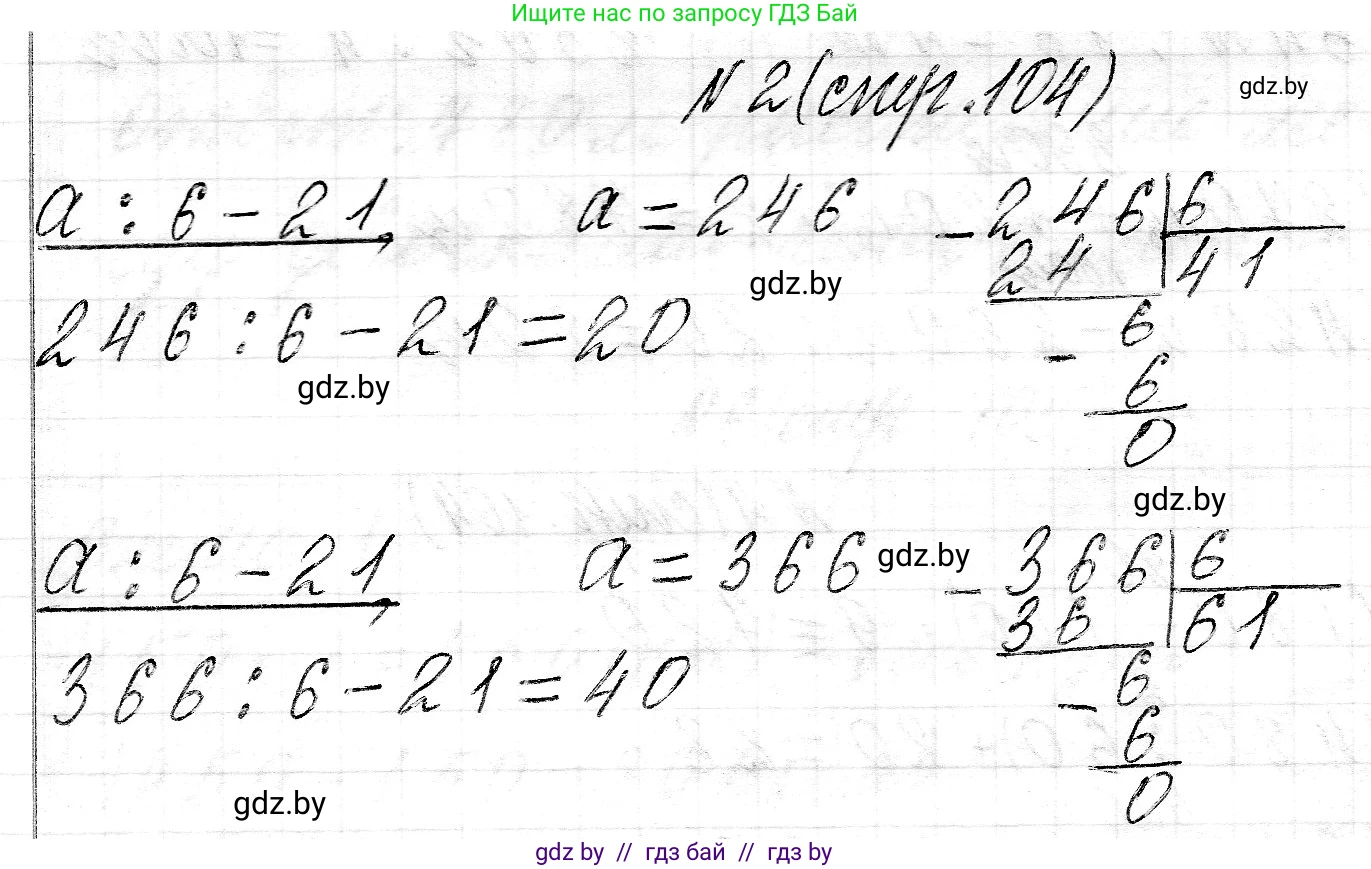 Ищите нас по запросу ГДЗ Бай
№ 2 (стр. 104)
gdz.by
a : 6 - 21, a = 246
246 | 6
24 41
gdz.by
246 : 6 - 21 = 20
- 6
gdz.by
6
0
gdz.by
a : 6 - 21, a = 366
gdz.by
- 366 | 6
36 61
366 : 6 - 21 = 40
- 6
6
0
gdz.by
gdz by // гдз бай // гдз by